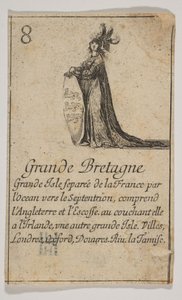 8
Grande Bretagne
Grande Isle separée de la France par
l'Ocean vers le Septentrion, comprend
l'Angleterre et l'Escosse. au couchant elle
a l'Irlande, vne autre grande Isle. Villes,
Londres, Oxford, Douvres. Riu. la Tamise.